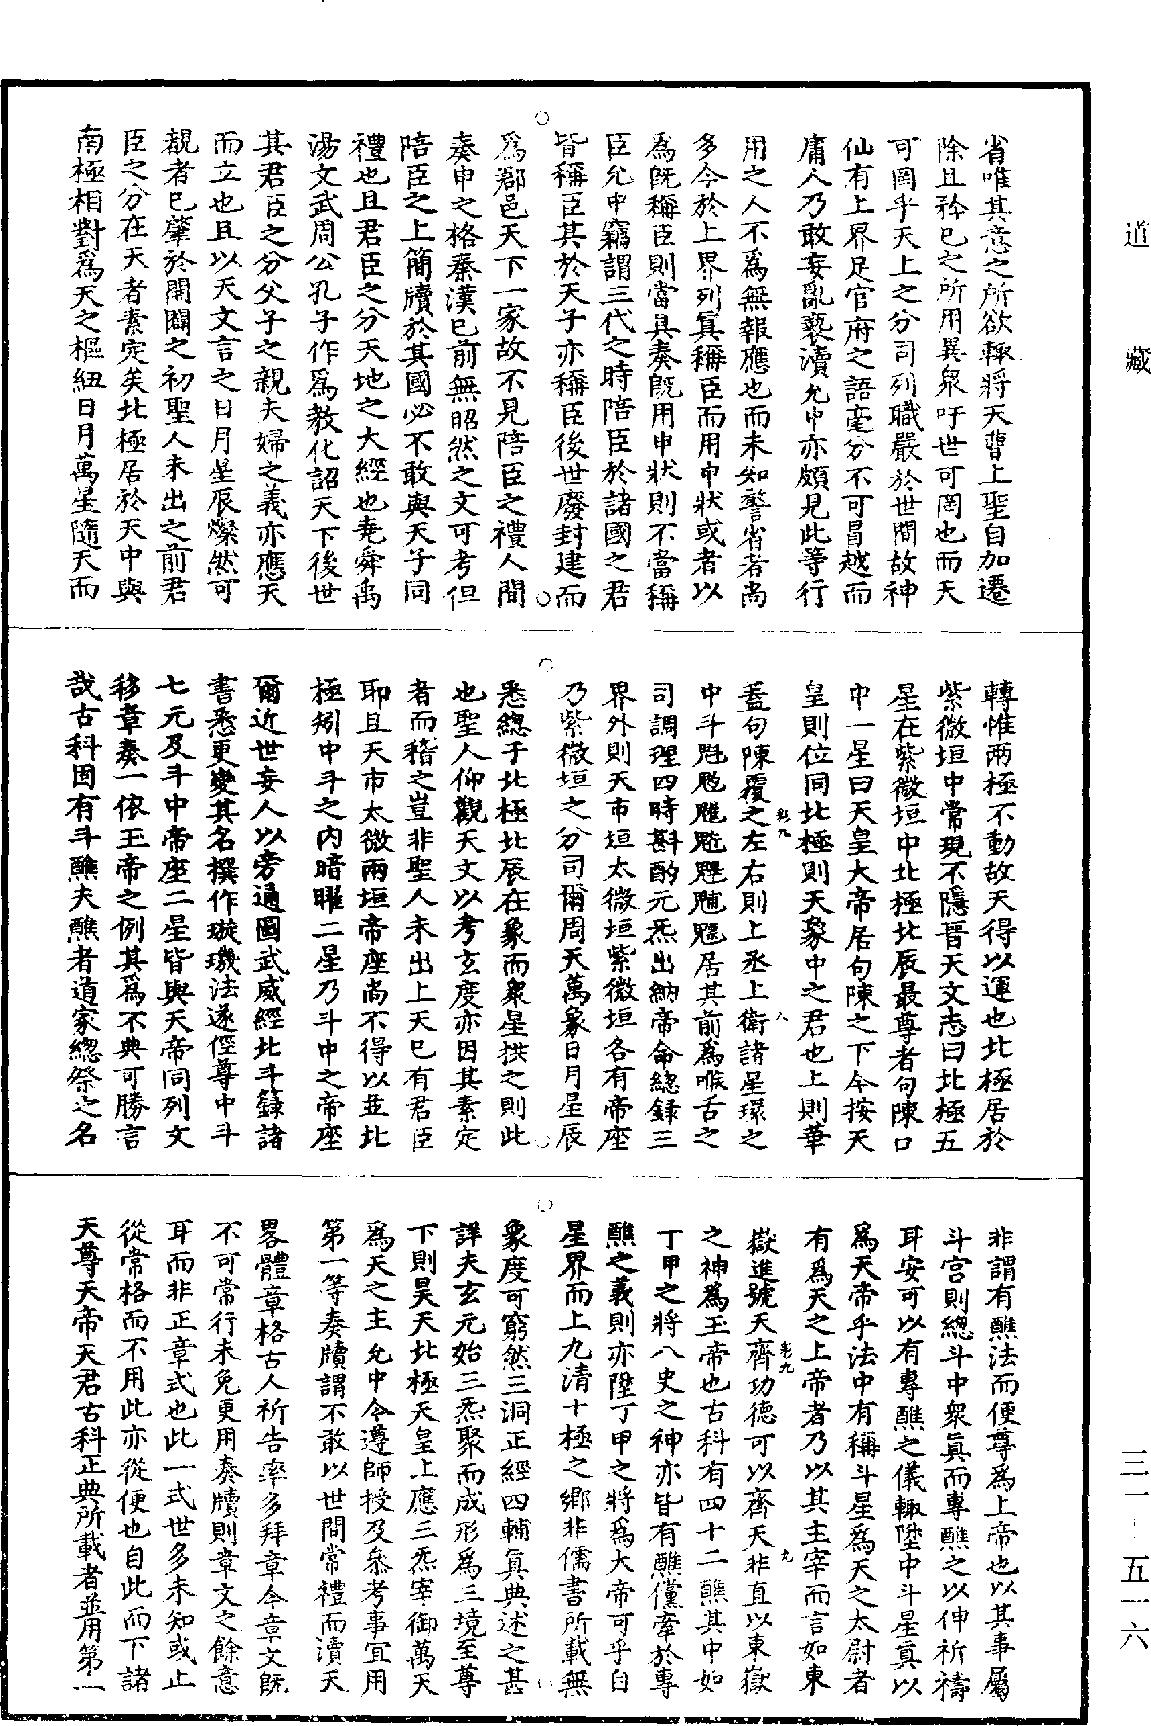 道藏
省唯其意之所欲輒將天曹上聖自加遷
除且矜已之所用異衆吁世可罔也而天
可罔乎天上之分司列職嚴於世間故神
仙有上界足官府之語毫分不可冒越而
庸人乃敢妄亂褻瀆允中亦頗見此等行
用之人不爲無報應也而未知警省者尚
多今於上界列真稱臣而用申狀或者以
爲旣稱臣則當具奏旣用申狀則不當稱
臣允中竊謂三代之時陪臣於諸國之君
皆稱臣其於天子亦稱臣後世廢封建而
爲郡邑天下一家故不見陪臣之禮人間
奏申之格秦漢已前無昭然之文可考但
陪臣之上簡牘於其國必不敢與天子同
禮也且君臣之分天地之大經也堯舜禹
湯文武周公孔子作爲教化詔天下後世
其君臣之分父子之親夫婦之義亦應天
而立也且以天文言之日月星辰燦然可
覩者已肇於開闢之初聖人未出之前君
臣之分在天者素定矣北極居於天中與
南極相對爲天之樞紐日月萬星隨天而
轉惟兩極不動故天得以運也北極居於
紫微垣中常現不隱晉天文志曰北極五
星在紫微垣中北極北辰最尊者句陳口
中一星曰天皇大帝居句陳之下今按天
皇則位同北極則天象中之君也上則華
蓋句陳覆之左右則上丞上衛諸星環之
中斗魁𩲃𩳐魓魒居其前爲喉舌之
司調理四時斟酌元炁出納帝命總錄三
界外則天市垣太微垣紫微垣各有帝座
乃紫微垣之分司爾周天萬象日月星辰
悉總于北極北辰在象而衆星拱之則此
也聖人仰觀天文以考玄度亦因其素定
者而稽之豈非聖人未出上天已有君臣
耶且天市太微兩垣帝座尚不得以並北
極矧中斗之內暗曜二星乃斗中之帝座
爾近世妄人以旁通圖武威經北斗籙諸
書悉更變其名撰作璇璣法遂徑尊中斗
七元及斗中帝座二星皆與天帝同列文
移章奏一依玉帝之例其爲不典可勝言
哉古科固有斗醮夫醮者道家總祭之名
非謂有醮法而便尊爲上帝也以其事屬
斗宮則總斗中衆真而專醮之以伸祈禱
耳安可以有專醮之儀輒陞中斗星真以
爲天帝乎法中有稱斗星爲天之太尉者
有爲天之上帝者乃以其主宰而言如東
嶽進號天齊功德可以齊天非直以東嶽
之神爲玉帝也古科有四十二醮其中如
丁甲之將八史之神亦皆有醮儻牽於專
醮之義則亦陞丁甲之將爲大帝可乎自
星界而上九清十極之鄉非儒書所載無
象度可窮然三洞正經四輔真典述之甚
詳夫玄元始三炁聚而成形爲三境至尊
下則昊天北極天皇上應三炁宰御萬天
爲天之主允中今遵師授及叅考事宜用
第一等奏牘謂不敢以世間常禮而瀆天
畧體章格古人祈告率多拜章今章文旣
不可常行未免更用奏牘則章文之餘意
耳而非正章式也此一式世多未知或止
從常格而不用此亦從便也自此而下諸
天尊天帝天君古科正典所載者並用第一
卷九
八
卷九
九
三一·五一六